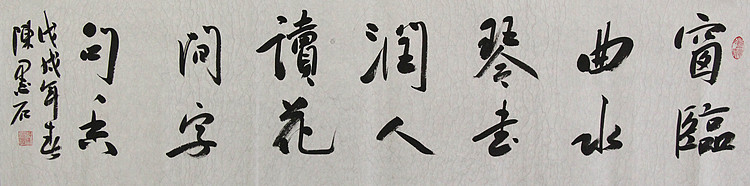 窗臨
曲水
琴書
潤人
讀花
間字
句香
戊戌年春
陳墨石